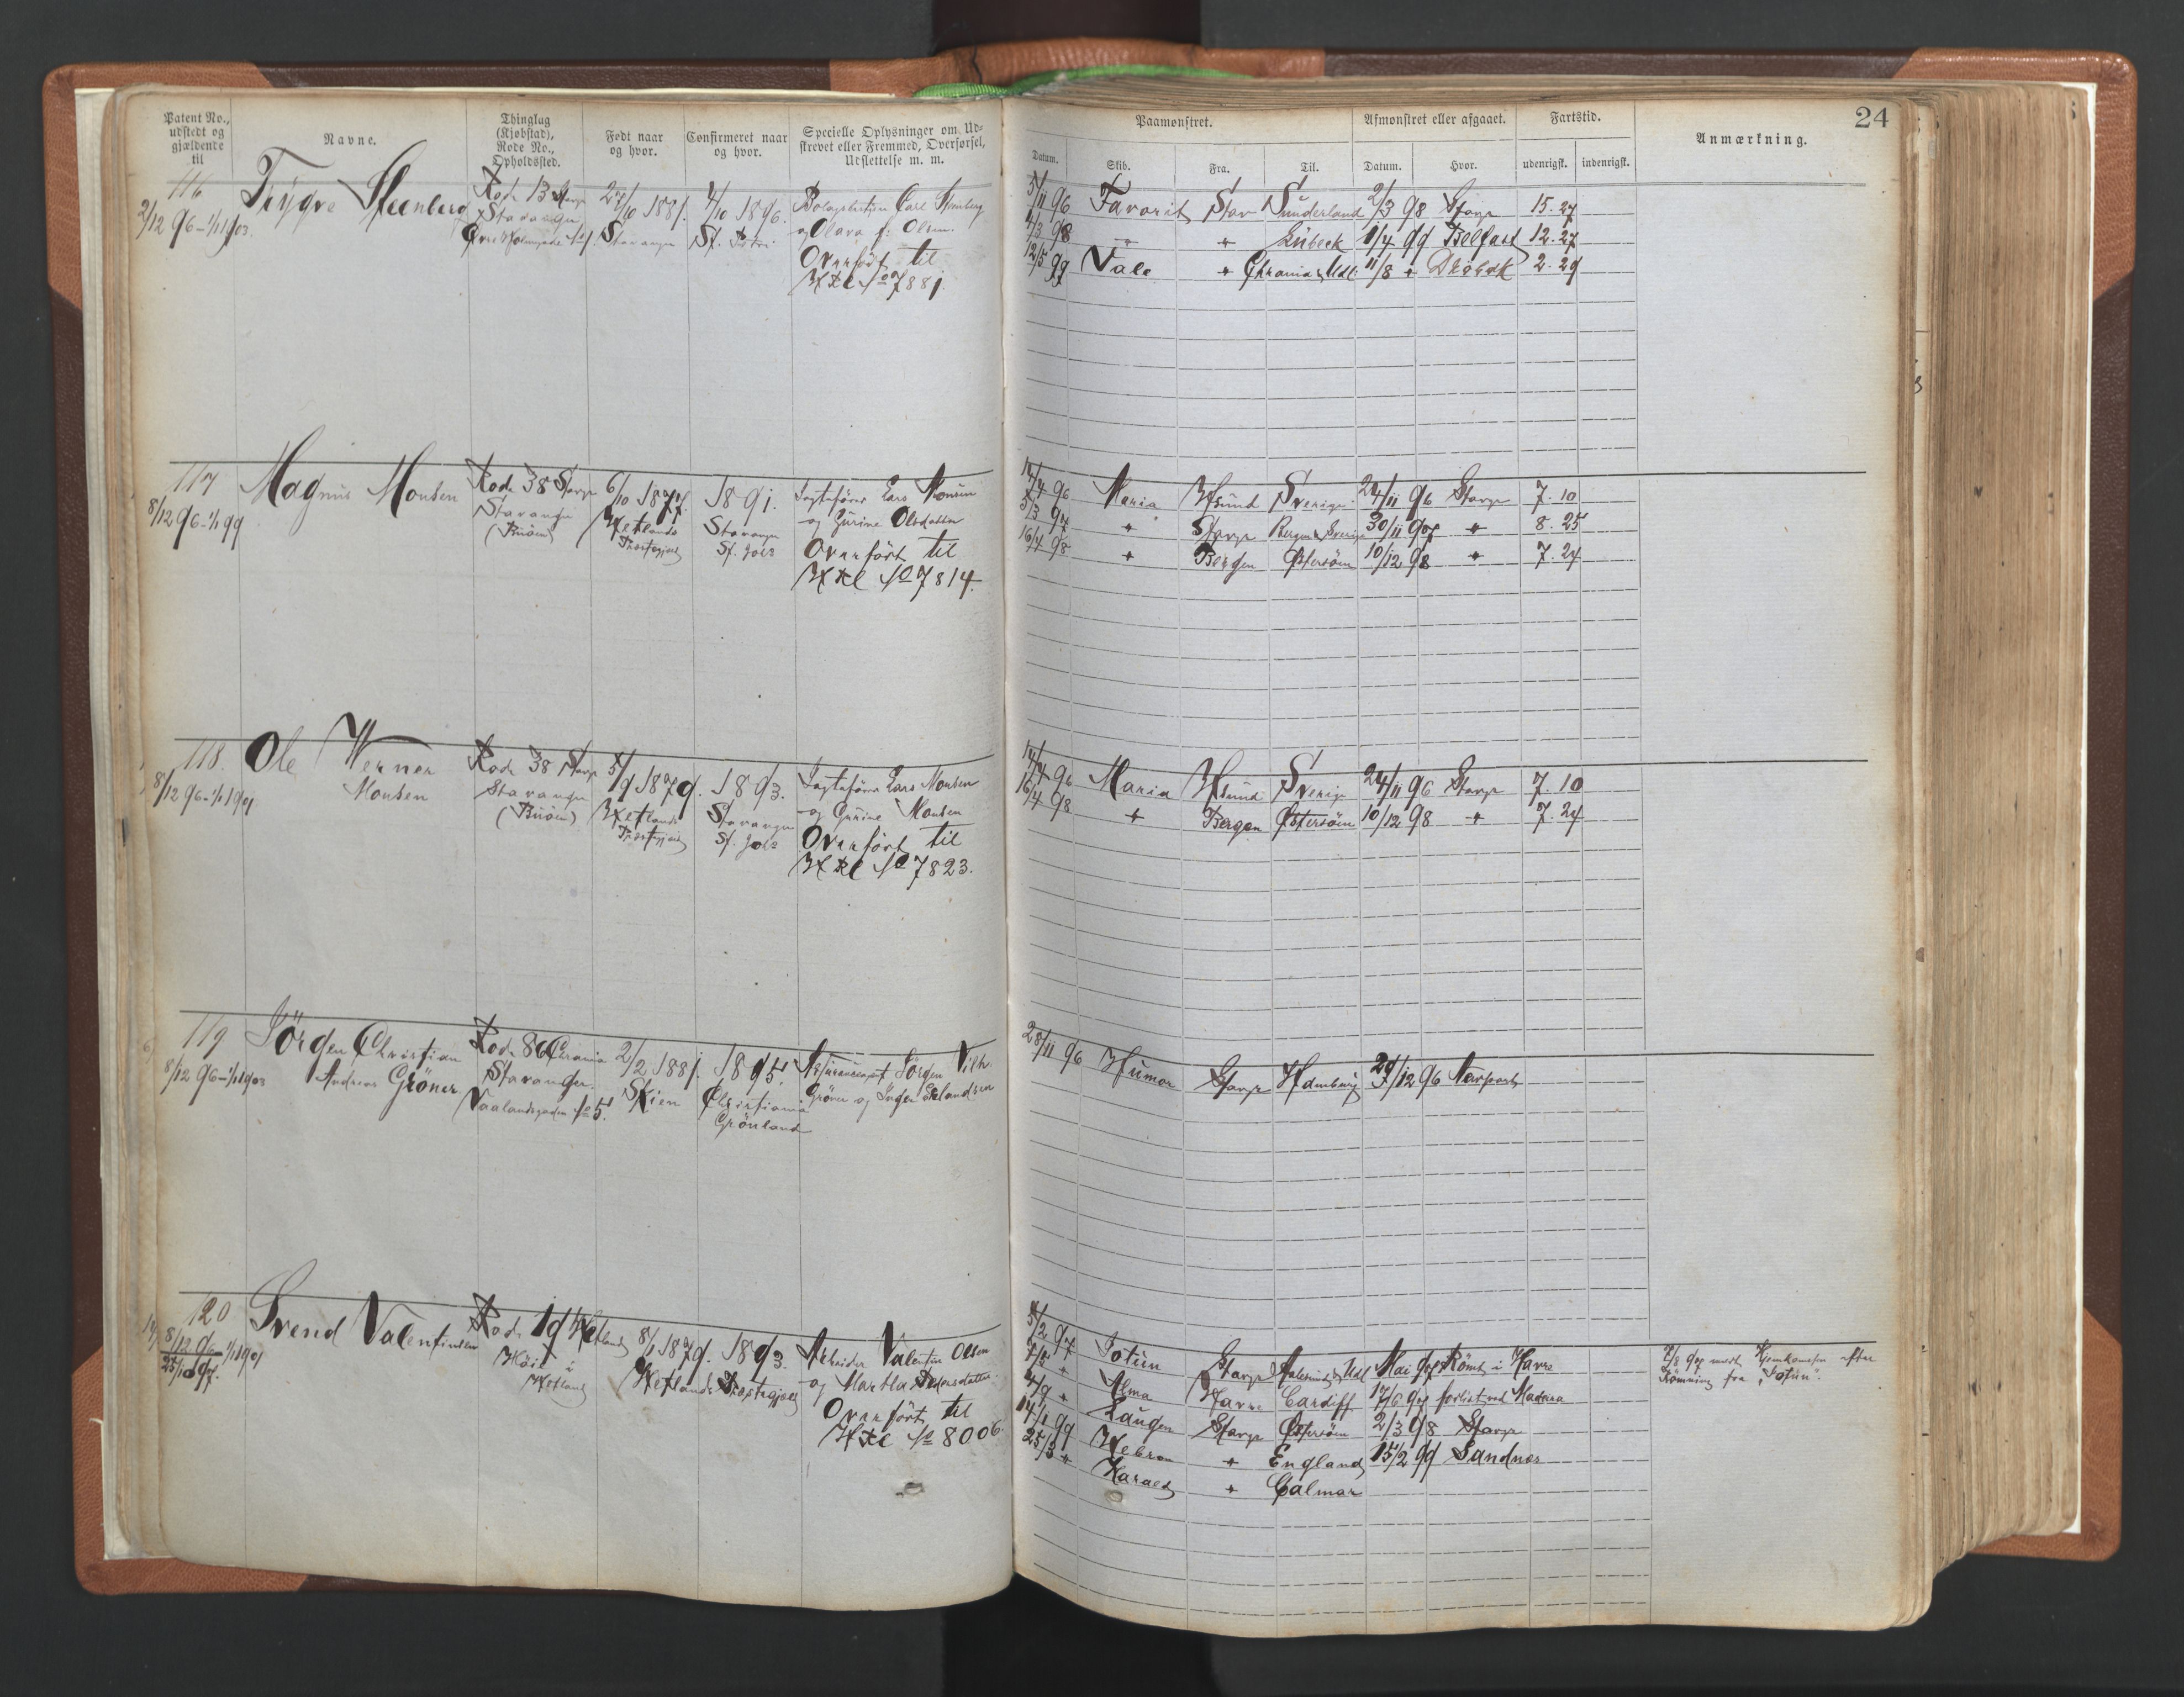 Patent No., udstedt og gjældende til
Navne.
Thinglag (Kjøbstad), Rode No., Opholdssted.
Født naar og hvor.
Confirmeret naar og hvor.
Specielle Oplysninger om Udskrevet eller Fremmed, Overførsel, Udslettelse m. m.
Paamønstret.
Afmønstret eller afgaaet.
Fartstid.
Anmærkning.
24
Datum. Skib. Fra. Til. Datum. Hvor. udenrigsk. indenrigsk.
116
2/12 96 - 1/1 1903
Trygve Steenberg
Rode 13 Stavgr
Stavanger
27/10 1881.
Stavanger
4/10 1896.
St. Petri
Carl Stenberg
og Olava f. Olsen.
Overført til
Hxl No 7881.
5/11 96 Favorit Stav Sunderland 2/3 98 Stavgr 15. 27
4/3 98 " " Lübeck 1/4 99 Belfast 12. 27
12/5 99 Vale " Chrania & Udl. 11/8 " Drøbak 2. 29
117
8/12 96 - 1/1 99
Magnus Monsen
Rode 38 Stavgr
Stavanger
(Buøen)
6/10 1877.
Hetlands
Præstegjæld
1891.
Stavanger
St. Johs
Jagtefører Lars Monsen
og Gurine Olsdatter
Overført til
Hxl No 7814.
14/4 96 Maria Hsund Sverige 24/11 96 Stavgr 7. 10
5/3 97 " Stavgr Bergen & Sverige 30/11 97 " 8. 25
16/4 98 " Bergen Østersøen 10/12 98 " 7. 24
118.
8/12 96 - 1/1 1901
Ole Werner
Monsen
Rode 38 Stavgr
Stavanger
(Buøen)
5/9 1879.
Hetlands
Præstegjæld
1893.
Stavanger
St. Johs
Jagtefører Lars Monsen
og Gurine Monsen
Overført til
Hxl No 7823.
14/4 96 Maria Hsund Sverige 24/11 96 Stavgr 7. 10
16/4 98 " Bergen Østersøen 10/12 98 " 7. 24
119
8/12 96 - 1/1 1903
Jörgen Christian
Andreas Gröner
Rode 86 Crania
Stavanger.
Vaalandsgaden No 5.
2/2 1881.
Skien
1895.
Christiania
Grönland
Jörgen Vilh.
Gröner og Inger Erlandsen
28/11 96 Humor Stavgr Hamburg 29/12 96 Newport
120
8/12 96 - 1/1 1901
25/10 97.
Svend Valentinsen
Rode 19 Hetland
i
Hetland
8/1 1879.
Hetlands Præstegjæld
1893.
Arbeider Valentin Olsen
og Martha Pedersdatter
Overført til
Hxl No 8006
5/2 97 Jotun Stavgr Aalesund & Udl Mai 97 Römt i Havre
Alma Havre Cardiff 17/6 97 forlist ved Madeira
4/9 " Laugen Stavgr Østersøen 2/3 98 Stavgr
14/1 99 Hebron " England 15/2 99 Sandnæs
25/3 " Harald " Calmar
7/8 97 Hjemkomsten efter
Rømning fra "Jotun".